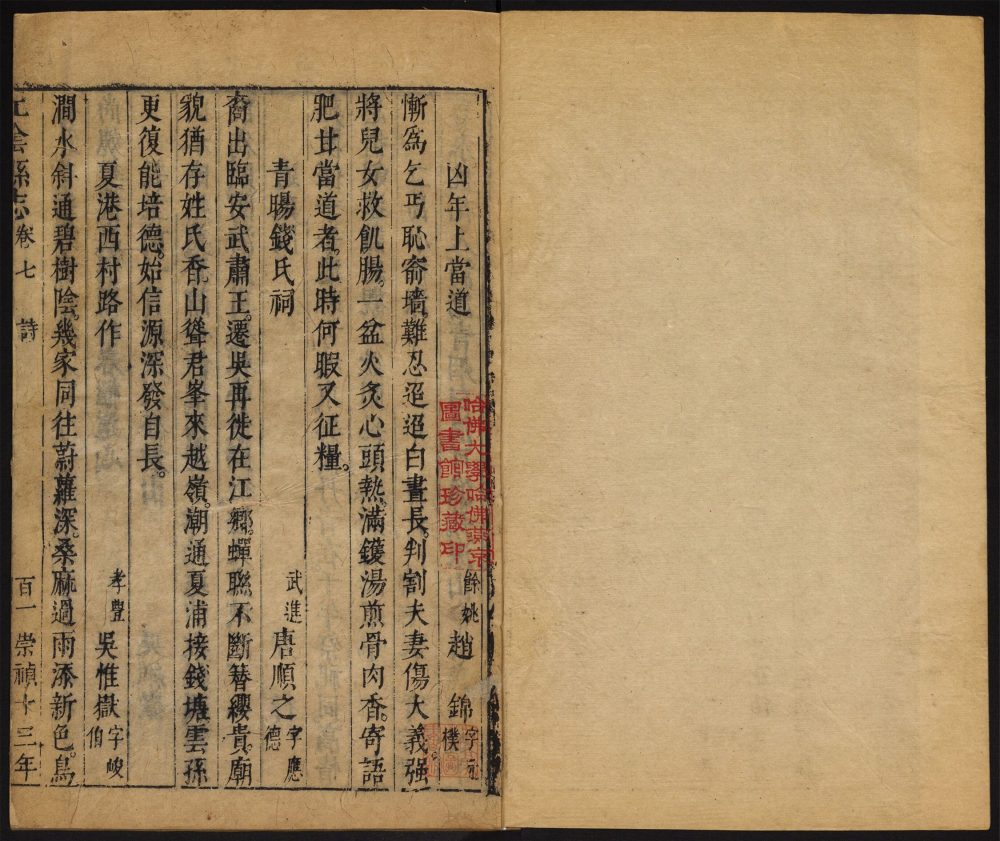 凶年上當道
餘姚趙錦字元樸
慚為乞丐恥㡭墻難忍迢迢白晝長判割夫妻傷大義强
將兒女救飢腸一盆火炙心頭熱滿鑊湯煎骨肉香寄語
肥甘當道者此時何暇又征糧
青暘錢氏祠
武進唐順之字應德
裔出臨安武肅王遷吳再徙在江鄉蟬聯不斷簪纓貴廟
貌猶存姓氏香山聳君峯來越嶺潮通夏浦接錢塘雲孫
更復能培德始信源深發自長
夏港西村路作
孝豐吳惟嶽字峻伯
澗水斜通碧樹陰幾家同往蔚蘿深桑麻過雨添新色鳥
江陰縣志卷七 詩 百一 崇禎十三年
哈佛大學哈佛燕京
圖書館珍藏印